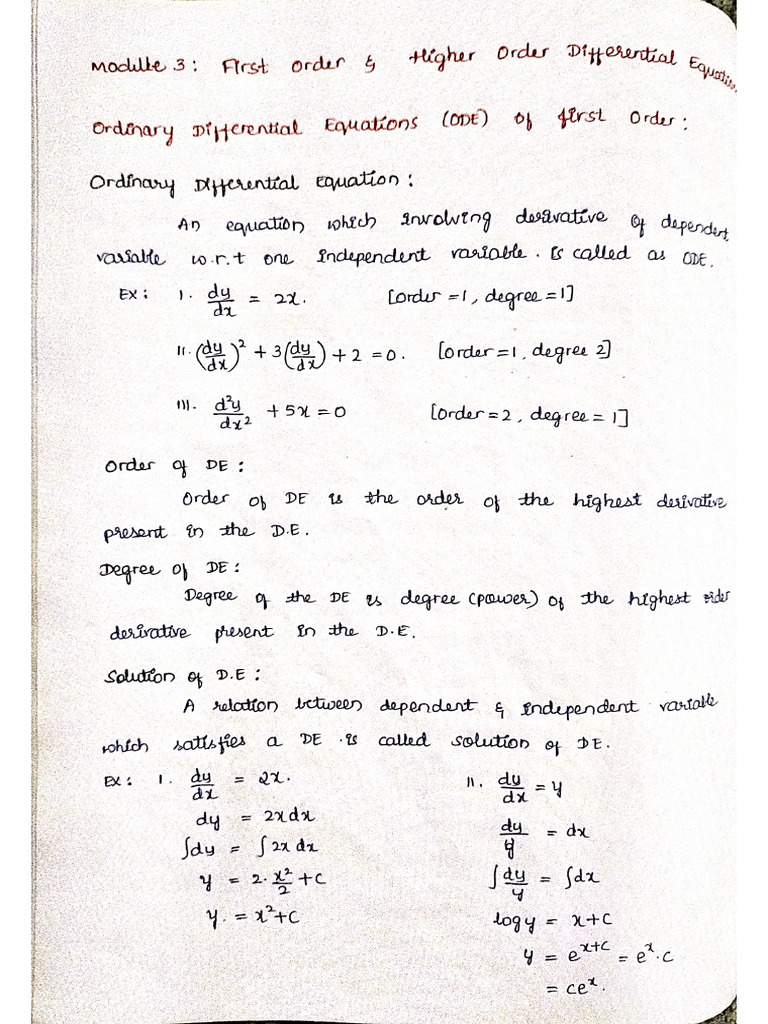 Module 3: First Order & Higher Order Differential Equation
Ordinary Differential Equations (ODE) of first Order:
Ordinary Differential Equation:
An equation which involving derivative of dependent
variable w.r.t one independent variable. is called as ODE.
Ex: I. dy/dx = 2x. [order = 1, degree = 1]
II. (dy/dx)² + 3(dy/dx) + 2 = 0. [order = 1, degree 2]
III. d²y/dx² + 5x = 0 [order = 2, degree = 1]
Order of DE:
Order of DE is the order of the highest derivative
present in the D.E.
Degree of DE:
Degree of the DE is degree (power) of the highest order
derivative present in the D.E.
Solution of D.E:
A relation between dependent & independent variable
which satisfies a DE. is called solution of DE.
Ex: I. dy/dx = 2x.
dy = 2x dx
∫dy = ∫2x dx
y = 2·x²/2 + c
y. = x² + c
II. dy/dx = y
dy/y = dx
∫dy/y = ∫dx
log y = x + c
y = e^(x+c) = e^x · c
= ce^x.